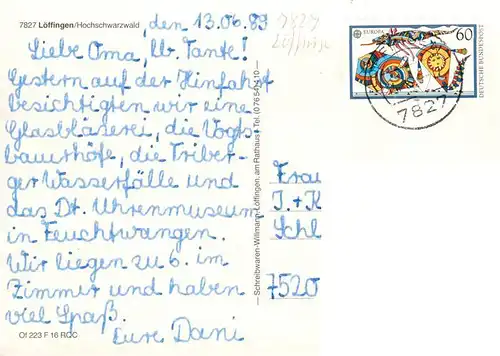 7827 Löffingen/Hochschwarzwald
, den 13.06.89
Liebe Oma, lb. Tante!
Gestern auf der Hinfahrt
besichtigten wir eine
Glasbläserei, die Vogts-
bauernhöfe, die Triber-
ger Wasserfälle und
das Dt. Uhrenmuseum
in Feuchtwangen.
Wir liegen zu 6. im
Zimmer und haben
viel Spaß.
Eure Dani
Of 223 F 16 RCC
Schreibwaren-Willmann-Löffingen, am Rathaus · Tel. (07654)
7827
Löffingen
EUROPA
60
DEUTSCHE BUNDESPOST
7827
Frau
I.+K
Schl
7520